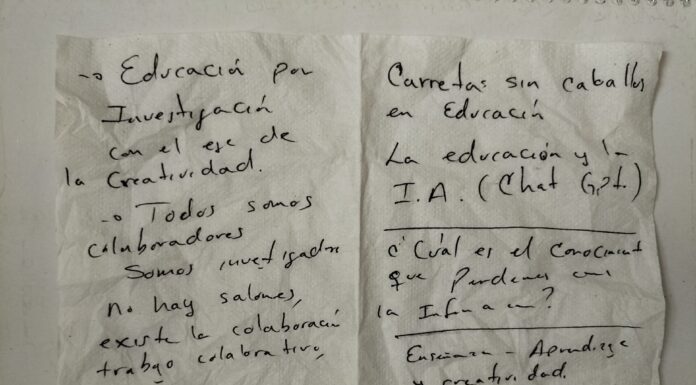 → Educación por
Investigación
con el eje de
la Creatividad.
→ Todos somos
colaboradores
Somos investigadores
no hay salones,
existe la colaboración
trabajo colaborativo,
Carretas sin caballos
en Educación
La educación y la
I.A. (Chat Gpt.)
¿Cuál es el conocimiento
que perdemos con
la Información?
Enseñanza - Aprendizaje
y creatividad.